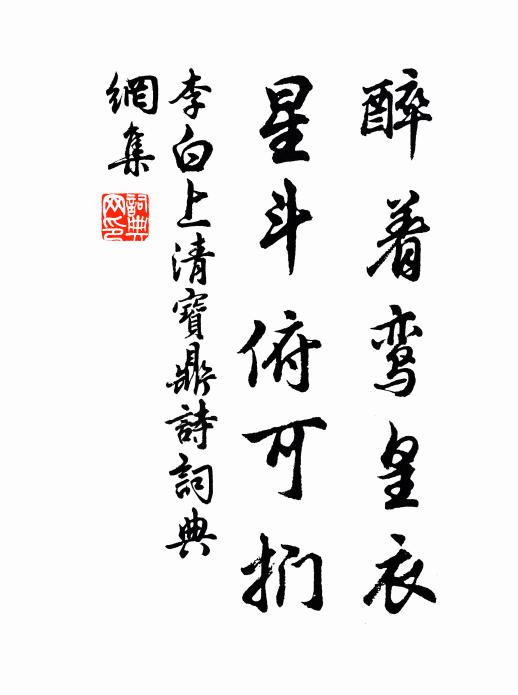 醉着鸾皇衣
星斗俯可扪
李白上清寶鼎詩詞典
網集
詞典
网印